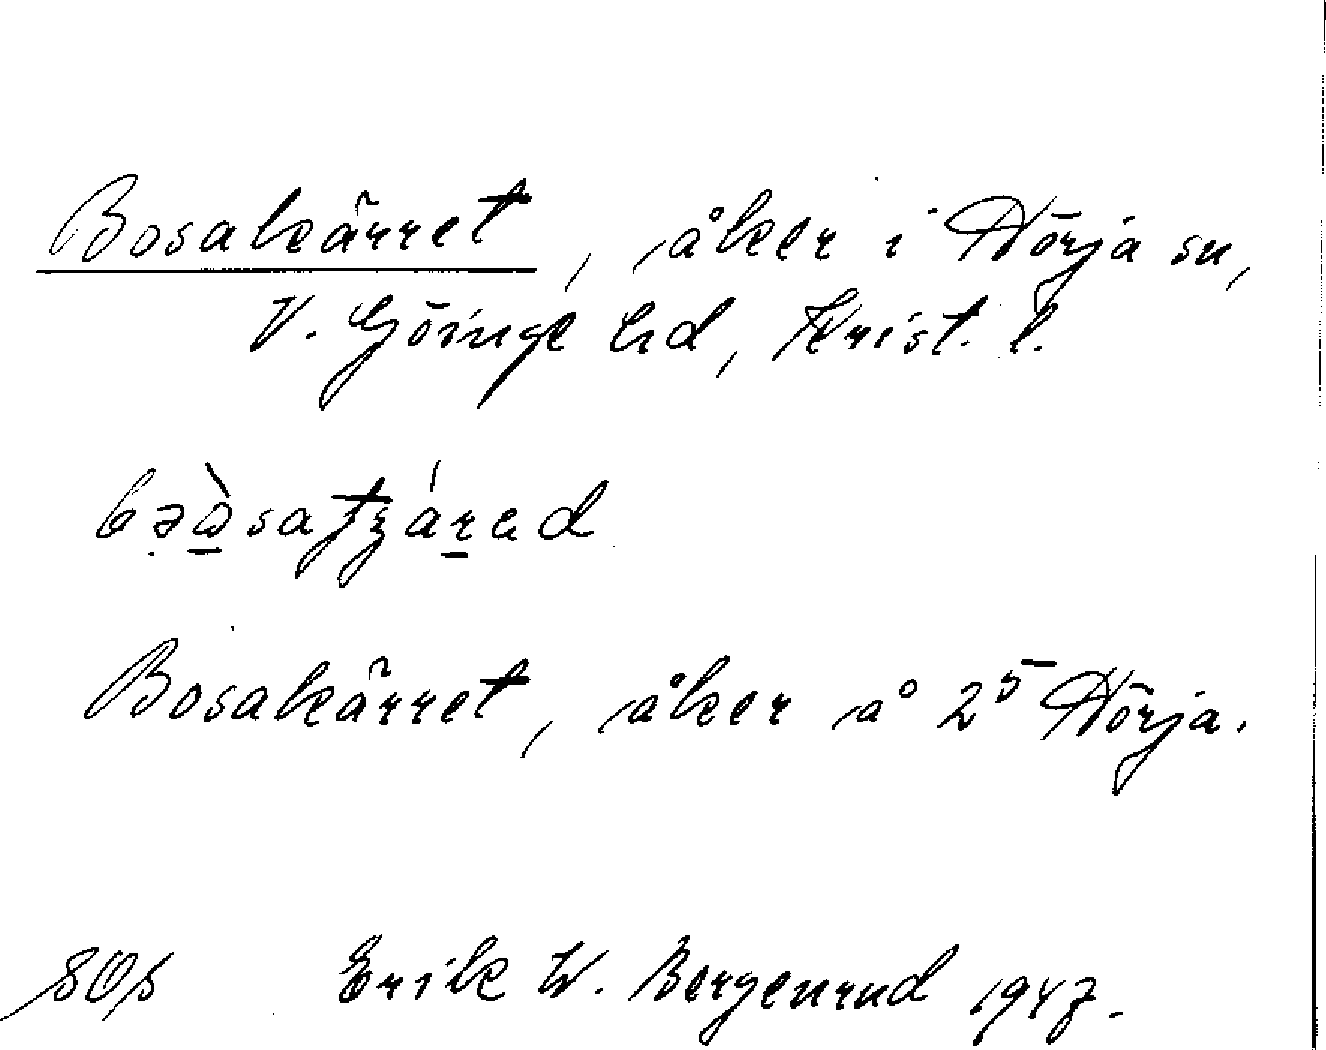 Bosakärret, åker i Nörja sn,
V. Göinge hd, Krist. l.
Bosakärret, åker å 2⁵ Nörja.
Erik W. Bergenrud 1947.